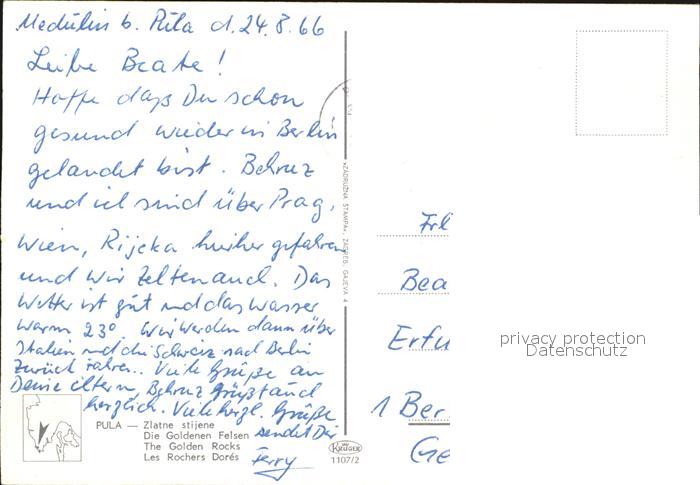 Medulin b. Pula d. 24.8.66
Leibe Beate!
Hoffe dass Du schon
gesund wieder in Berlin
gelandet bist. Behruz
und ich sind über Prag,
Wien, Rijeka hierher gefahren
und wir zelten auch. Das
Wetter ist gut und das Wasser
warm 23°. Wir werden dann über
Italien und die Schweiz nach Berlin
zurück fahren. Viele Grüße an
Deine Eltern, Behruz grüßt auch
herzlich. Viele herzl. Grüße
sendet Dir
Ferry
PULA — Zlatne stijene
Die Goldenen Felsen
The Golden Rocks
Les Rochers Dorés
KRUGER
1107/2
»ZADRUŽNA ŠTAMPA«, ZAGREB, GAJEVA 4
Frl
Bea
Erfu
1 Ber
Ge
privacy protection
Datenschutz